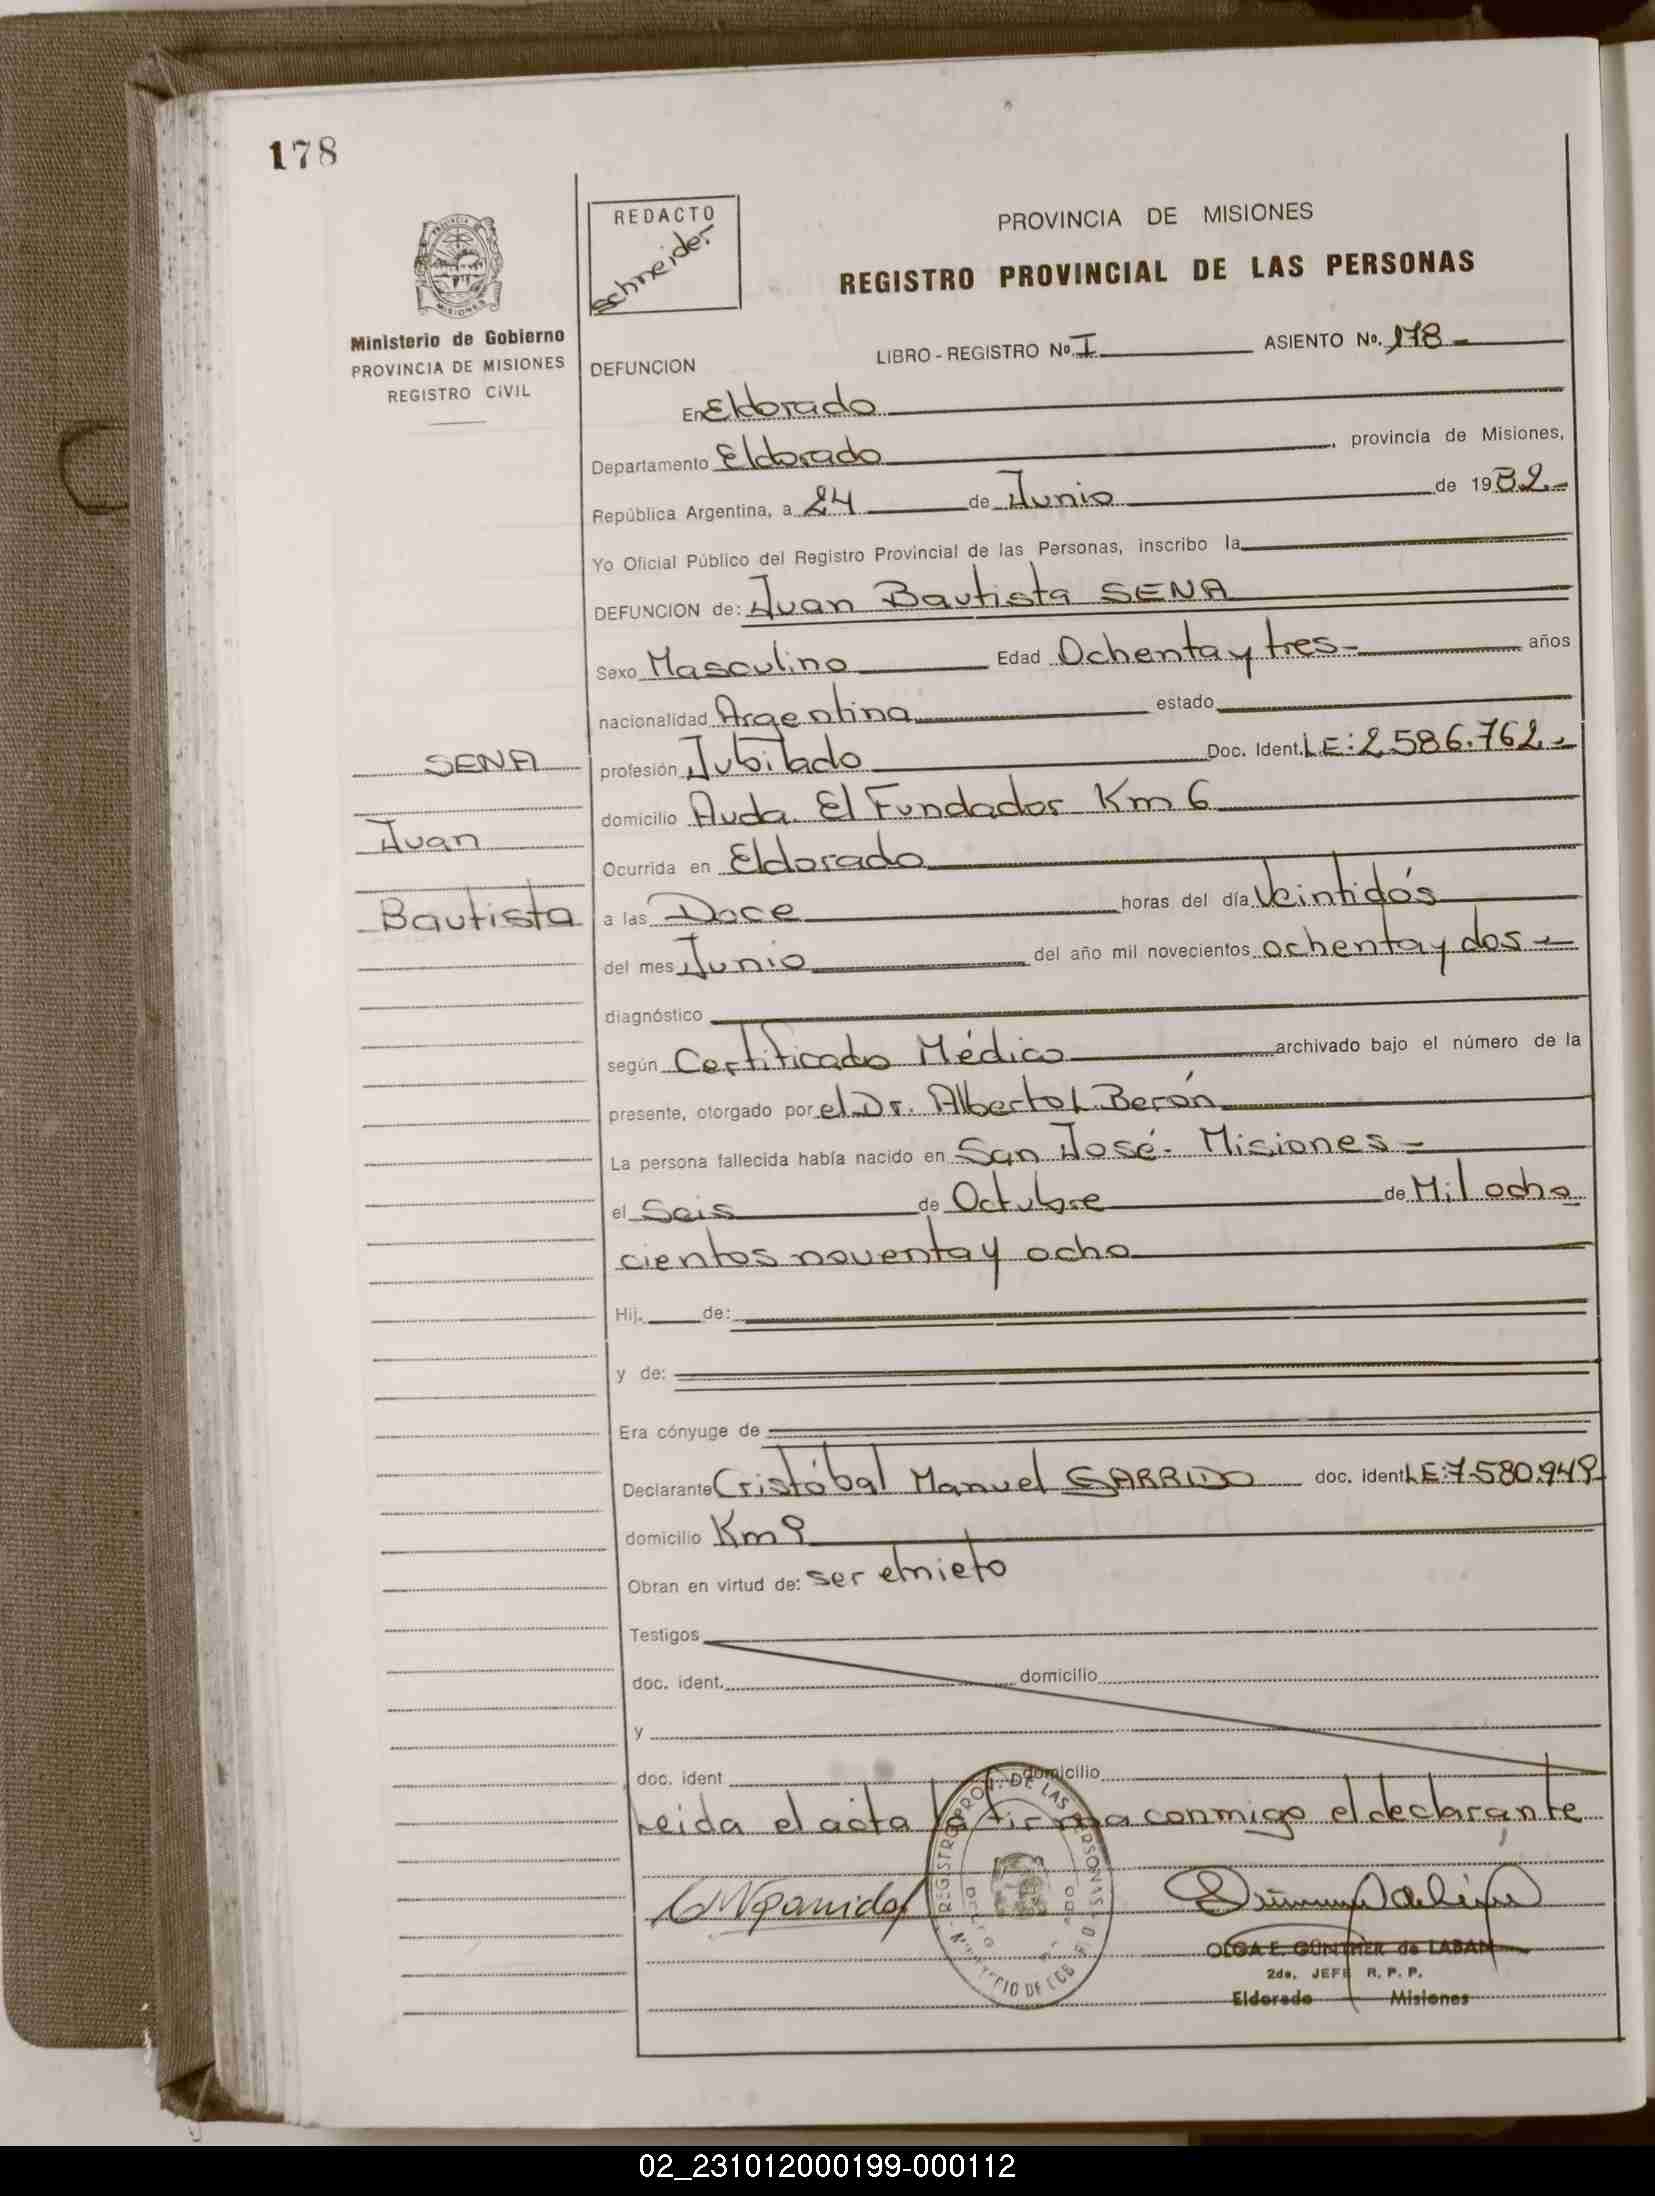 178
REDACTO
Schneider
PROVINCIA DE MISIONES
REGISTRO PROVINCIAL DE LAS PERSONAS
MISIONES
Ministerio de Gobierno
PROVINCIA DE MISIONES
REGISTRO CIVIL
DEFUNCION LIBRO - REGISTRO Nº. I ASIENTO No. 178
En Eldorado
Departamento Eldorado , provincia de Misiones,
República Argentina, a 24 de Junio de 1982
Yo Oficial Público del Registro Provincial de las Personas, inscribo la
DEFUNCION de: Juan Bautista SENA
Sexo Masculino Edad Ochenta y tres años
nacionalidad Argentina estado
profesión Jubilado Doc. Ident. LE: 2.586.762
domicilio Avda. El Fundador Km 6
Ocurrida en Eldorado
a las Doce horas del día Veintidós
del mes Junio del año mil novecientos ochenta y dos
diagnóstico
según Certificado Médico archivado bajo el número de la
presente, otorgado por el Dr. Alberto L. Berón
La persona fallecida había nacido en San José - Misiones
el Seis de Octubre de Mil ocho
cientos noventa y ocho
Hij. de:
y de:
Era cónyuge de
Declarante Cristóbal Manuel GARRIDO doc. ident. LE: 7.580.949
domicilio Km 9
Obran en virtud de: ser el nieto
Testigos
doc. ident. domicilio
y
doc. ident domicilio
Leida el acta la firma conmigo el declarante
SENA
Juan
Bautista
REGISTRO PROV. DE LAS PERSONAS
OLGA E. GÜNTHER de LABAN
2da. JEFE R. P. P.
Eldorado Misiones
02_231012000199-000112